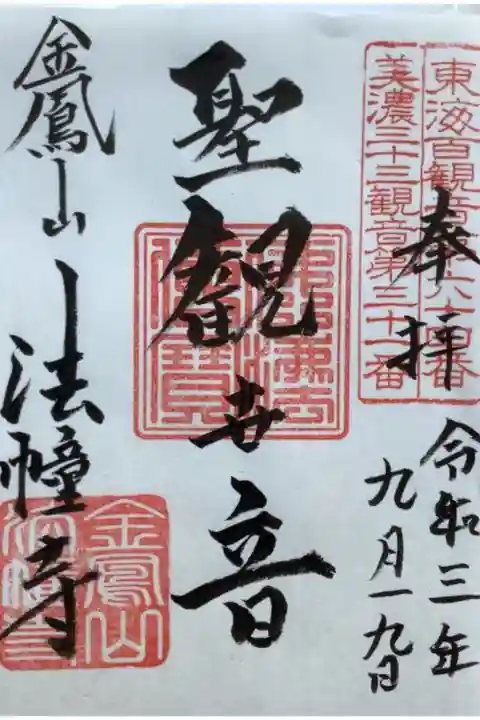 東海百観音第六十四番
美濃三十三観音第三十一番
奉拝
令和三年
九月一九日
聖観世音
金鳳山
法幢寺
金鳳山
法幢寺